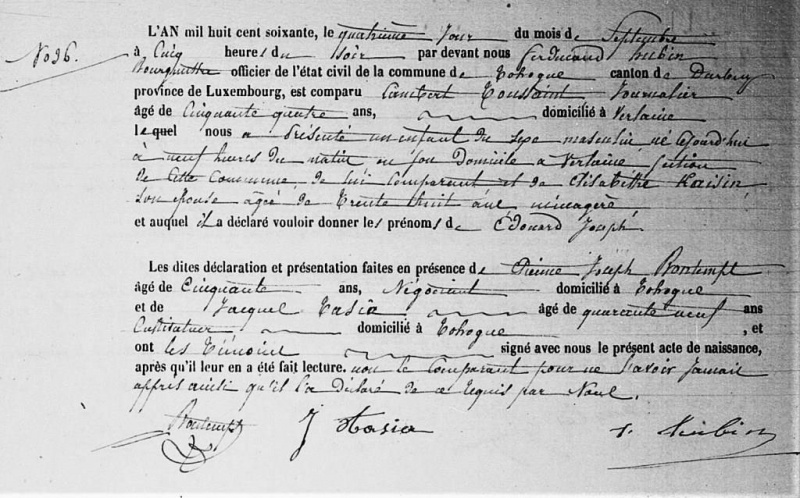 L'AN mil huit cent soixante, le quatrième jour du mois de Septembre
No 36.
à Cinq heures du Soir par devant nous Ferdinand Hubin
Bourgmestre officier de l'état civil de la commune de Tohogne canton de Durbuy
province de Luxembourg, est comparu Lambert Toussaint Journalier
âgé de Cinquante quatre ans, domicilié à Verlaine
lequel nous a Présenté un enfant du sexe masculin né cejourd'hui
à neuf heures du matin en son Domicile a Verlaine section
de Cette Commune, de lui Comparant et de Elisabethe Raisin
son épouse âgée de Trente huit ans ménagère
et auquel il a déclaré vouloir donner les prénoms de Edouard Joseph.
Les dites déclaration et présentation faites en présence de Pierre Joseph Bontemps
âgé de Cinquante ans, Négociant domicilié à Tohogne
et de Jacques Tasia âgé de quarante neuf ans
Cultivateur domicilié à Tohogne, et
ont les Témoins signé avec nous le présent acte de naissance,
après qu'il leur en a été fait lecture. non le Comparant pour ne savoir Jamais
appris ainsi qu'il l'a Déclaré de ce requis par Nous.
Bontemps J Tasia F. Hubin